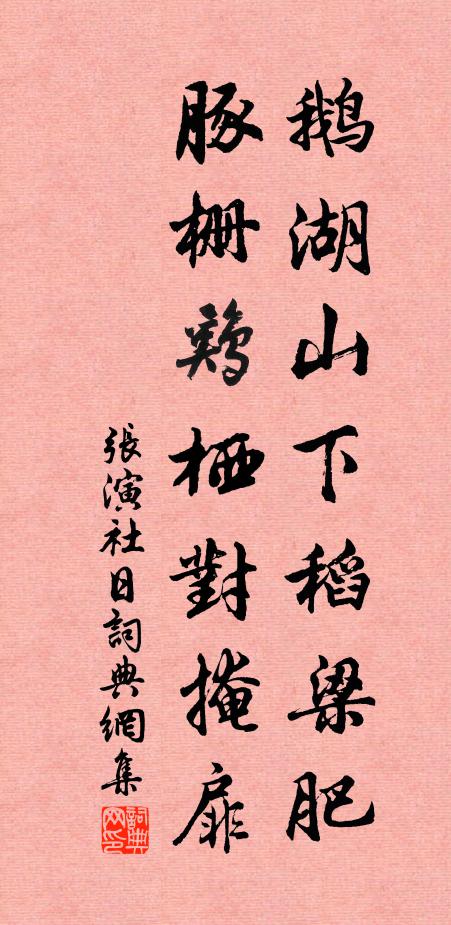 鵝湖山下稻粱肥
豚栅鷄栖對掩扉
張演社日詞典網集
詞典网印